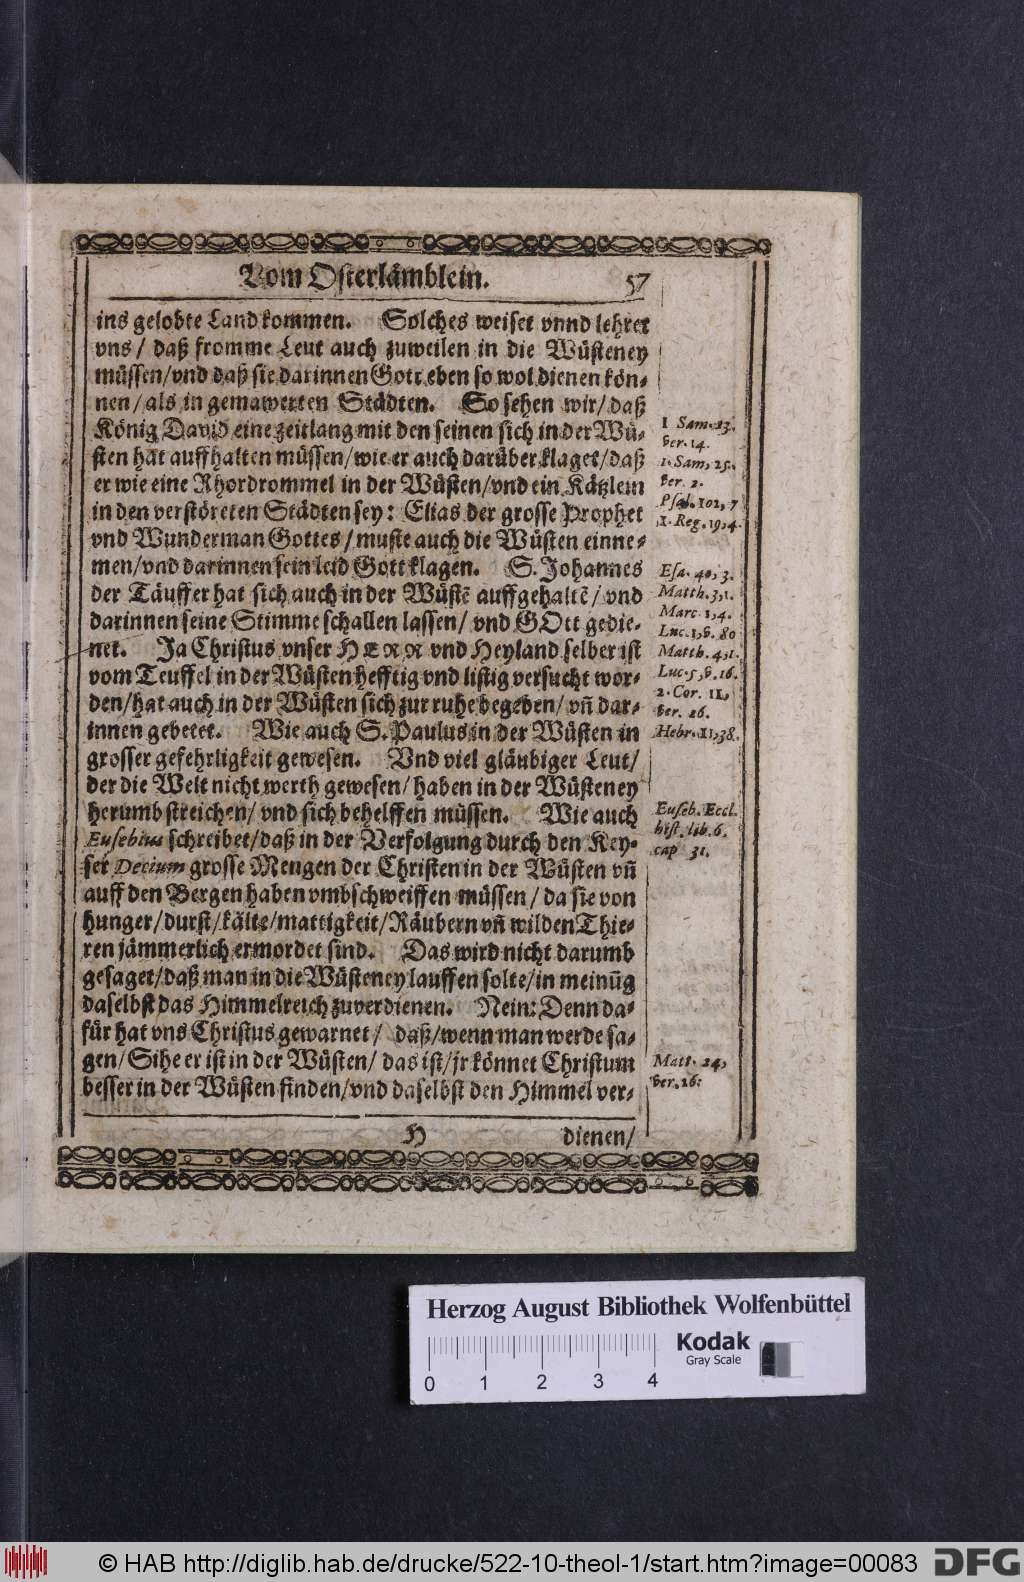 Vom Osterlämblein. 57
ins gelobte Land kommen. Solches weiset vnnd lehret
vns / daß fromme Leut auch zuweilen in die Wüsteney
müssen/vnd daß sie darinnen Gott eben so wol dienen kön-
nen/als in gemawerten Städten. So sehen wir/daß
König David eine zeitlang mit den seinen sich in der Wü-
sten hat auffhalten müssen/wie er auch darüber klaget/daß
er wie eine Rhordrommel in der Wüsten/vnd ein Kätzlein
in den verstöreten Städten sey: Elias der grosse Prophet
vnd Wunderman Gottes / muste auch die Wüsten einne-
men/vnd darinnen sein leid Gott klagen. S. Johannes
der Täuffer hat sich auch in der Wüstē auffgehaltē/ vnd
darinnen seine Stimme schallen lassen/ vnd GOtt gedie-
net. Ja Christus vnser HERR vnd Heyland selber ist
vom Teuffel in der Wüsten hefftig vnd listig versucht wor-
den/hat auch in der Wüsten sich zur ruhe begeben/ vñ dar-
innen gebetet. Wie auch S. Paulus in der Wüsten in
grosser gefehrligkeit gewesen. Vnd viel gläubiger Leut/
der die Welt nicht werth gewesen/ haben in der Wüsteney
herumb streichen/ vnd sich behelffen müssen. Wie auch
Eusebius schreibet/daß in der Verfolgung durch den Key-
ser Decium grosse Mengen der Christen in der Wüsten vñ
auff den Bergen haben vmbschweiffen müssen/ da sie von
hunger/durst/kälte/mattigkeit/Räubern vñ wilden Thie-
ren jämmerlich ermordet sind. Das wird nicht darumb
gesaget/daß man in die Wüsteney lauffen solte/in meinūg
daselbst das Himmelreich zuverdienen. Nein: Denn da-
für hat vns Christus gewarnet / daß/wenn man werde sa-
gen/Sihe er ist in der Wüsten/ das ist/jr könnet Christum
besser in der Wüsten finden/vnd daselbst den Himmel ver-
H dienen/
1 Sam. 23.
ver. 14.
1. Sam. 25.
ver. 2.
Psal. 102, 7
1. Reg. 19, 4.
Esa. 40, 3.
Matth. 3, 1.
Marc. 1, 4.
Luc. 1, v. 80
Matth. 4, 1.
Luc. 5, v. 16.
2. Cor. 11,
ver. 26.
Hebr. 11, 38.
Euseb. Eccl.
hist. lib. 6.
cap 31.
Matt. 24,
ver. 26:
Herzog August Bibliothek Wolfenbüttel
Kodak
Gray Scale
0 1 2 3 4
© HAB http://diglib.hab.de/drucke/522-10-theol-1/start.htm?image=00083
DFG